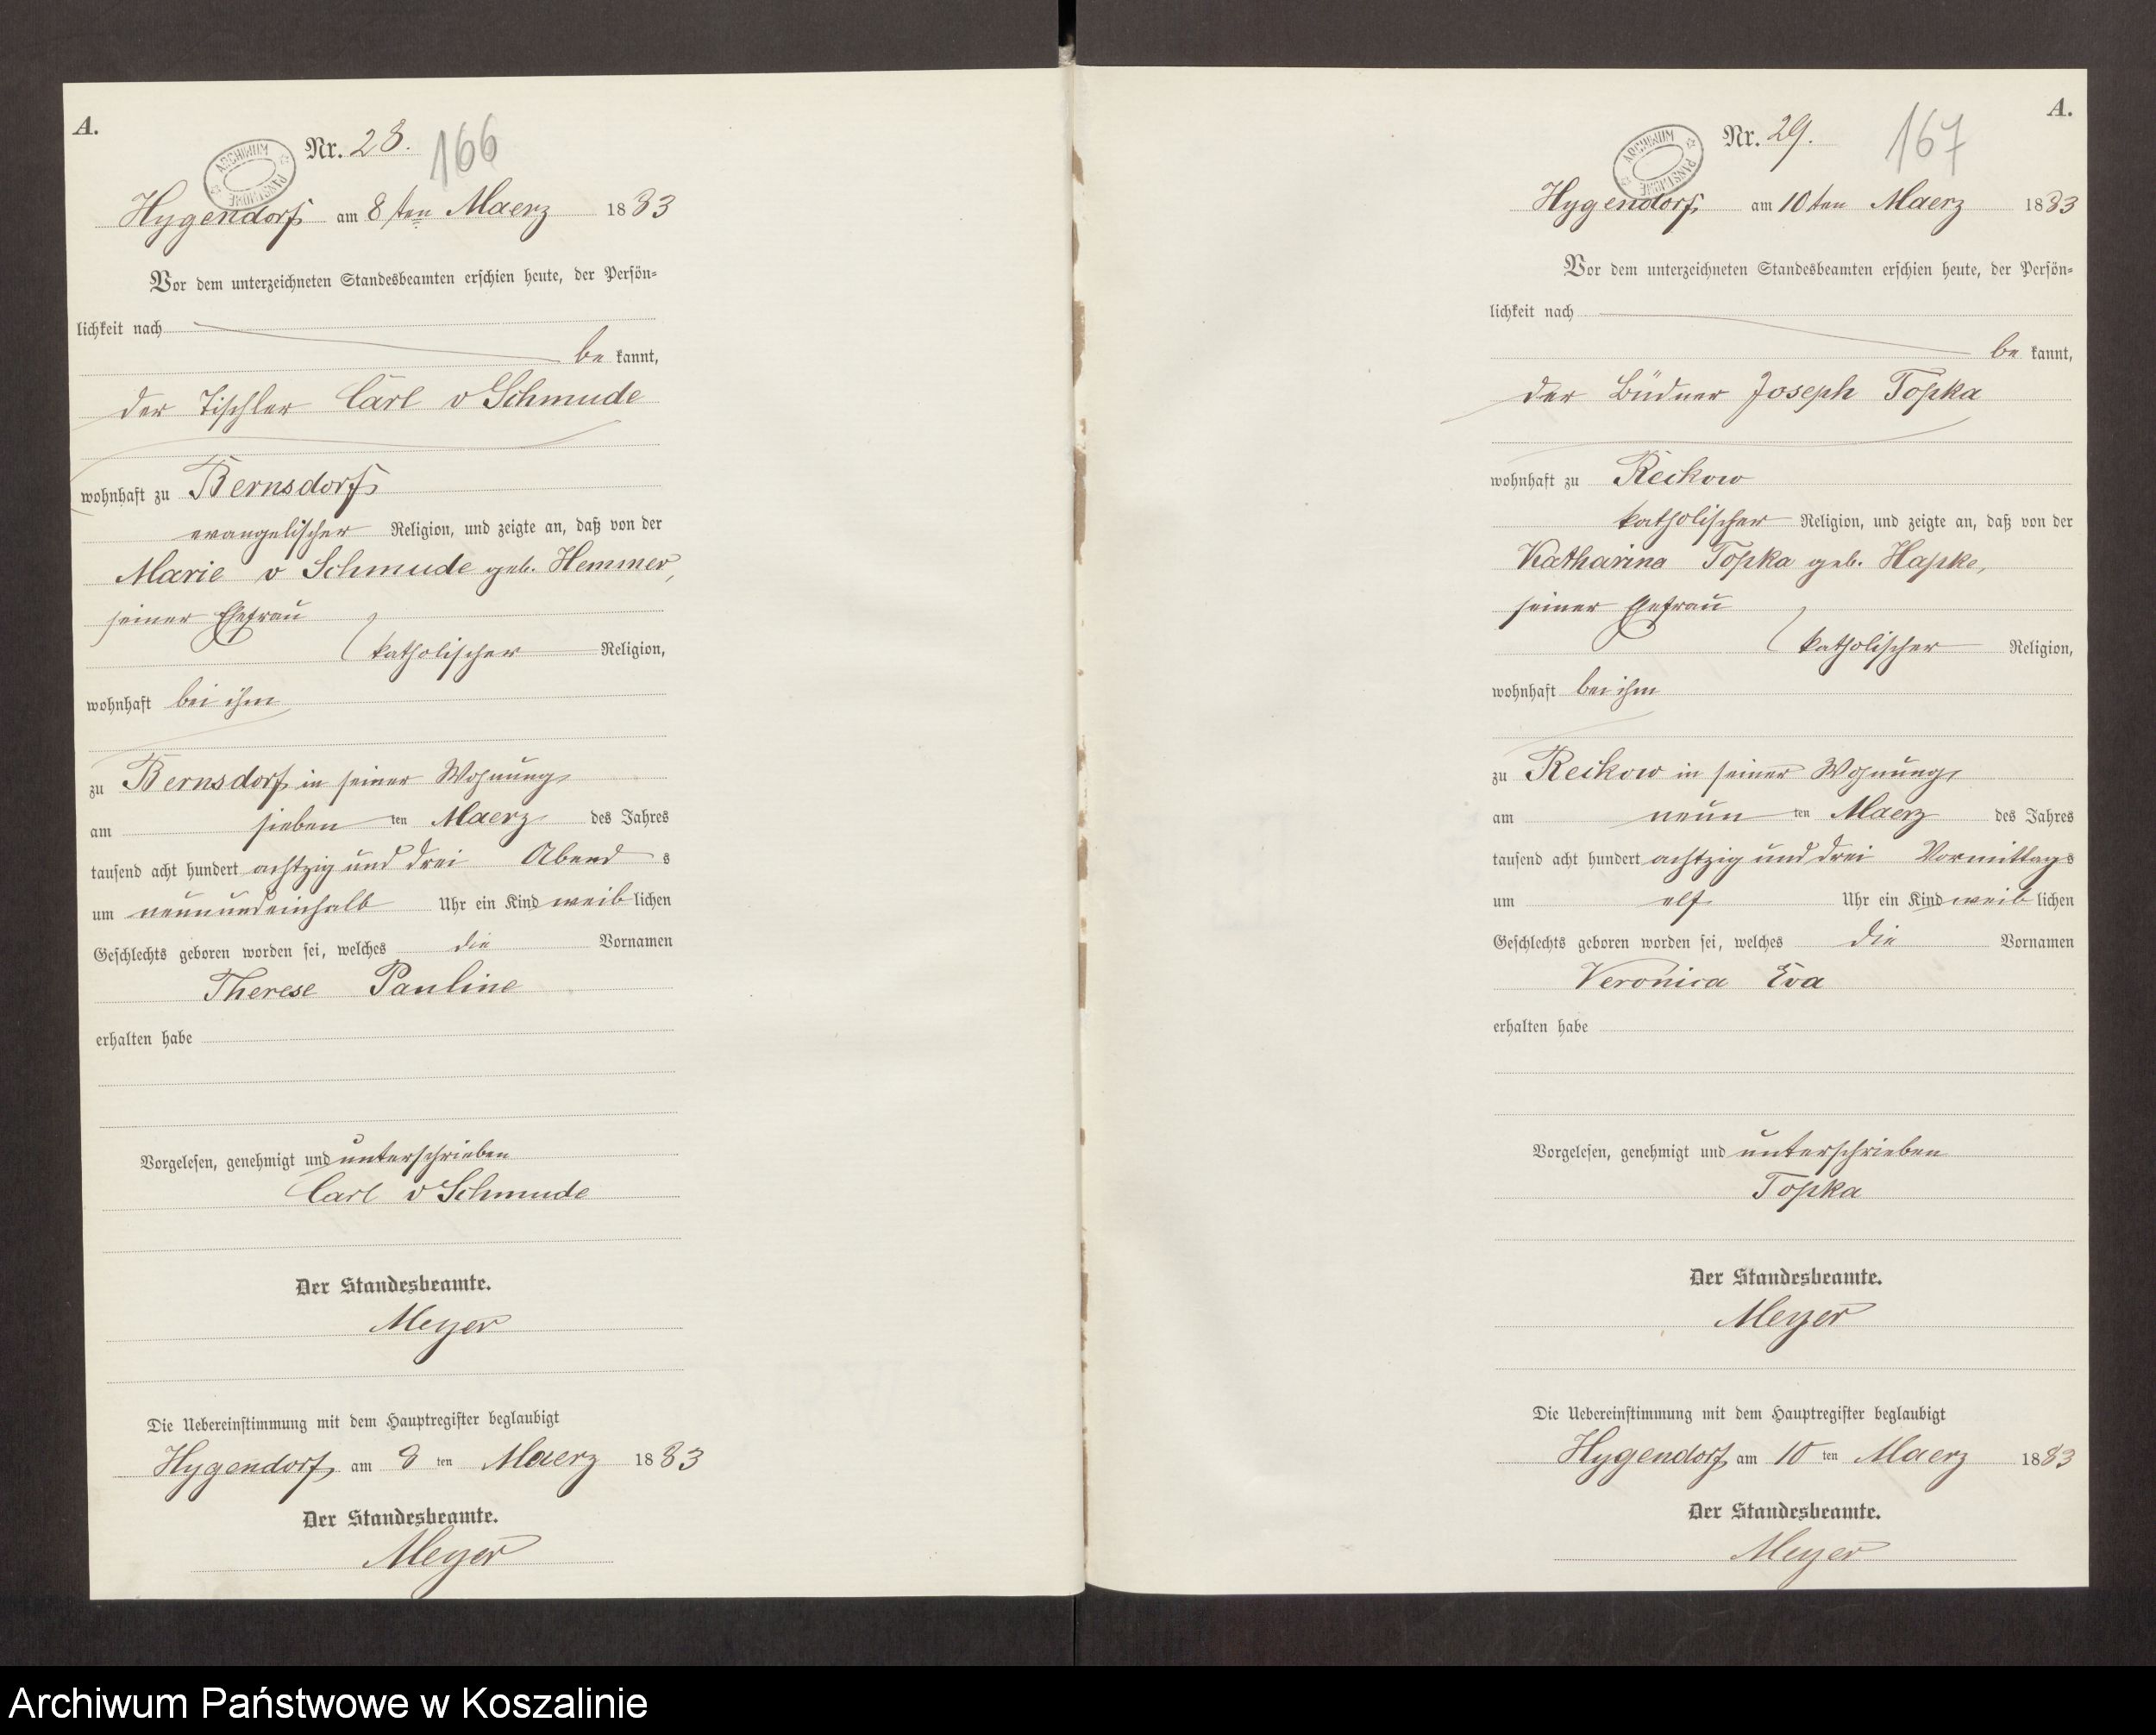 A.
Nr. 28.
166
ARCHIWUM PAŃSTWOWE
Hygendorf am 8 ten Maerz 1883
Vor dem unterzeichneten Standesbeamten erschien heute, der Persön-
lichkeit nach
be kannt,
der Tischler Carl v Schmude
wohnhaft zu Bernsdorf
evangelischer Religion, und zeigte an, daß von der
Marie v Schmude geb. Hemmer,
seiner Ehefrau
katholischer Religion,
wohnhaft bei ihm
zu Bernsdorf in seiner Wohnung
am sieben ten Maerz des Jahres
tausend acht hundert achtzig und drei Abend s
um neunundeinhalb Uhr ein Kind weib lichen
Geschlechts geboren worden sei, welches die Vornamen
Therese Pauline
erhalten habe
Vorgelesen, genehmigt und unterschrieben
Carl v Schmude
Der Standesbeamte.
Meyer
Die Uebereinstimmung mit dem Hauptregister beglaubigt
Hygendorf am 8 ten Maerz 1883
Der Standesbeamte.
Meyer
A.
Nr. 29.
167
ARCHIWUM PAŃSTWOWE
Hygendorf am 10 ten Maerz 1883
Vor dem unterzeichneten Standesbeamten erschien heute, der Persön-
lichkeit nach
be kannt,
der Büdner Joseph Topka
wohnhaft zu Reckow
katholischer Religion, und zeigte an, daß von der
Katharina Topka geb. Hapke,
seiner Ehefrau
katholischer Religion,
wohnhaft bei ihm
zu Reckow in seiner Wohnung
am neun ten Maerz des Jahres
tausend acht hundert achtzig und drei Vormittags
um elf Uhr ein Kind weib lichen
Geschlechts geboren worden sei, welches die Vornamen
Veronica Eva
erhalten habe
Vorgelesen, genehmigt und unterschrieben
Topka
Der Standesbeamte.
Meyer
Die Uebereinstimmung mit dem Hauptregister beglaubigt
Hygendorf am 10 ten Maerz 1883
Der Standesbeamte.
Meyer
Archiwum Państwowe w Koszalinie